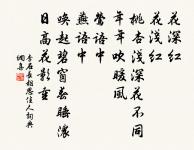 花深红
花浅红
桃杏浅深花不同
年年吹暖风
莺语中
燕语中
唤起碧窗春睡浓
日高花影重
李石长相思佳人词典